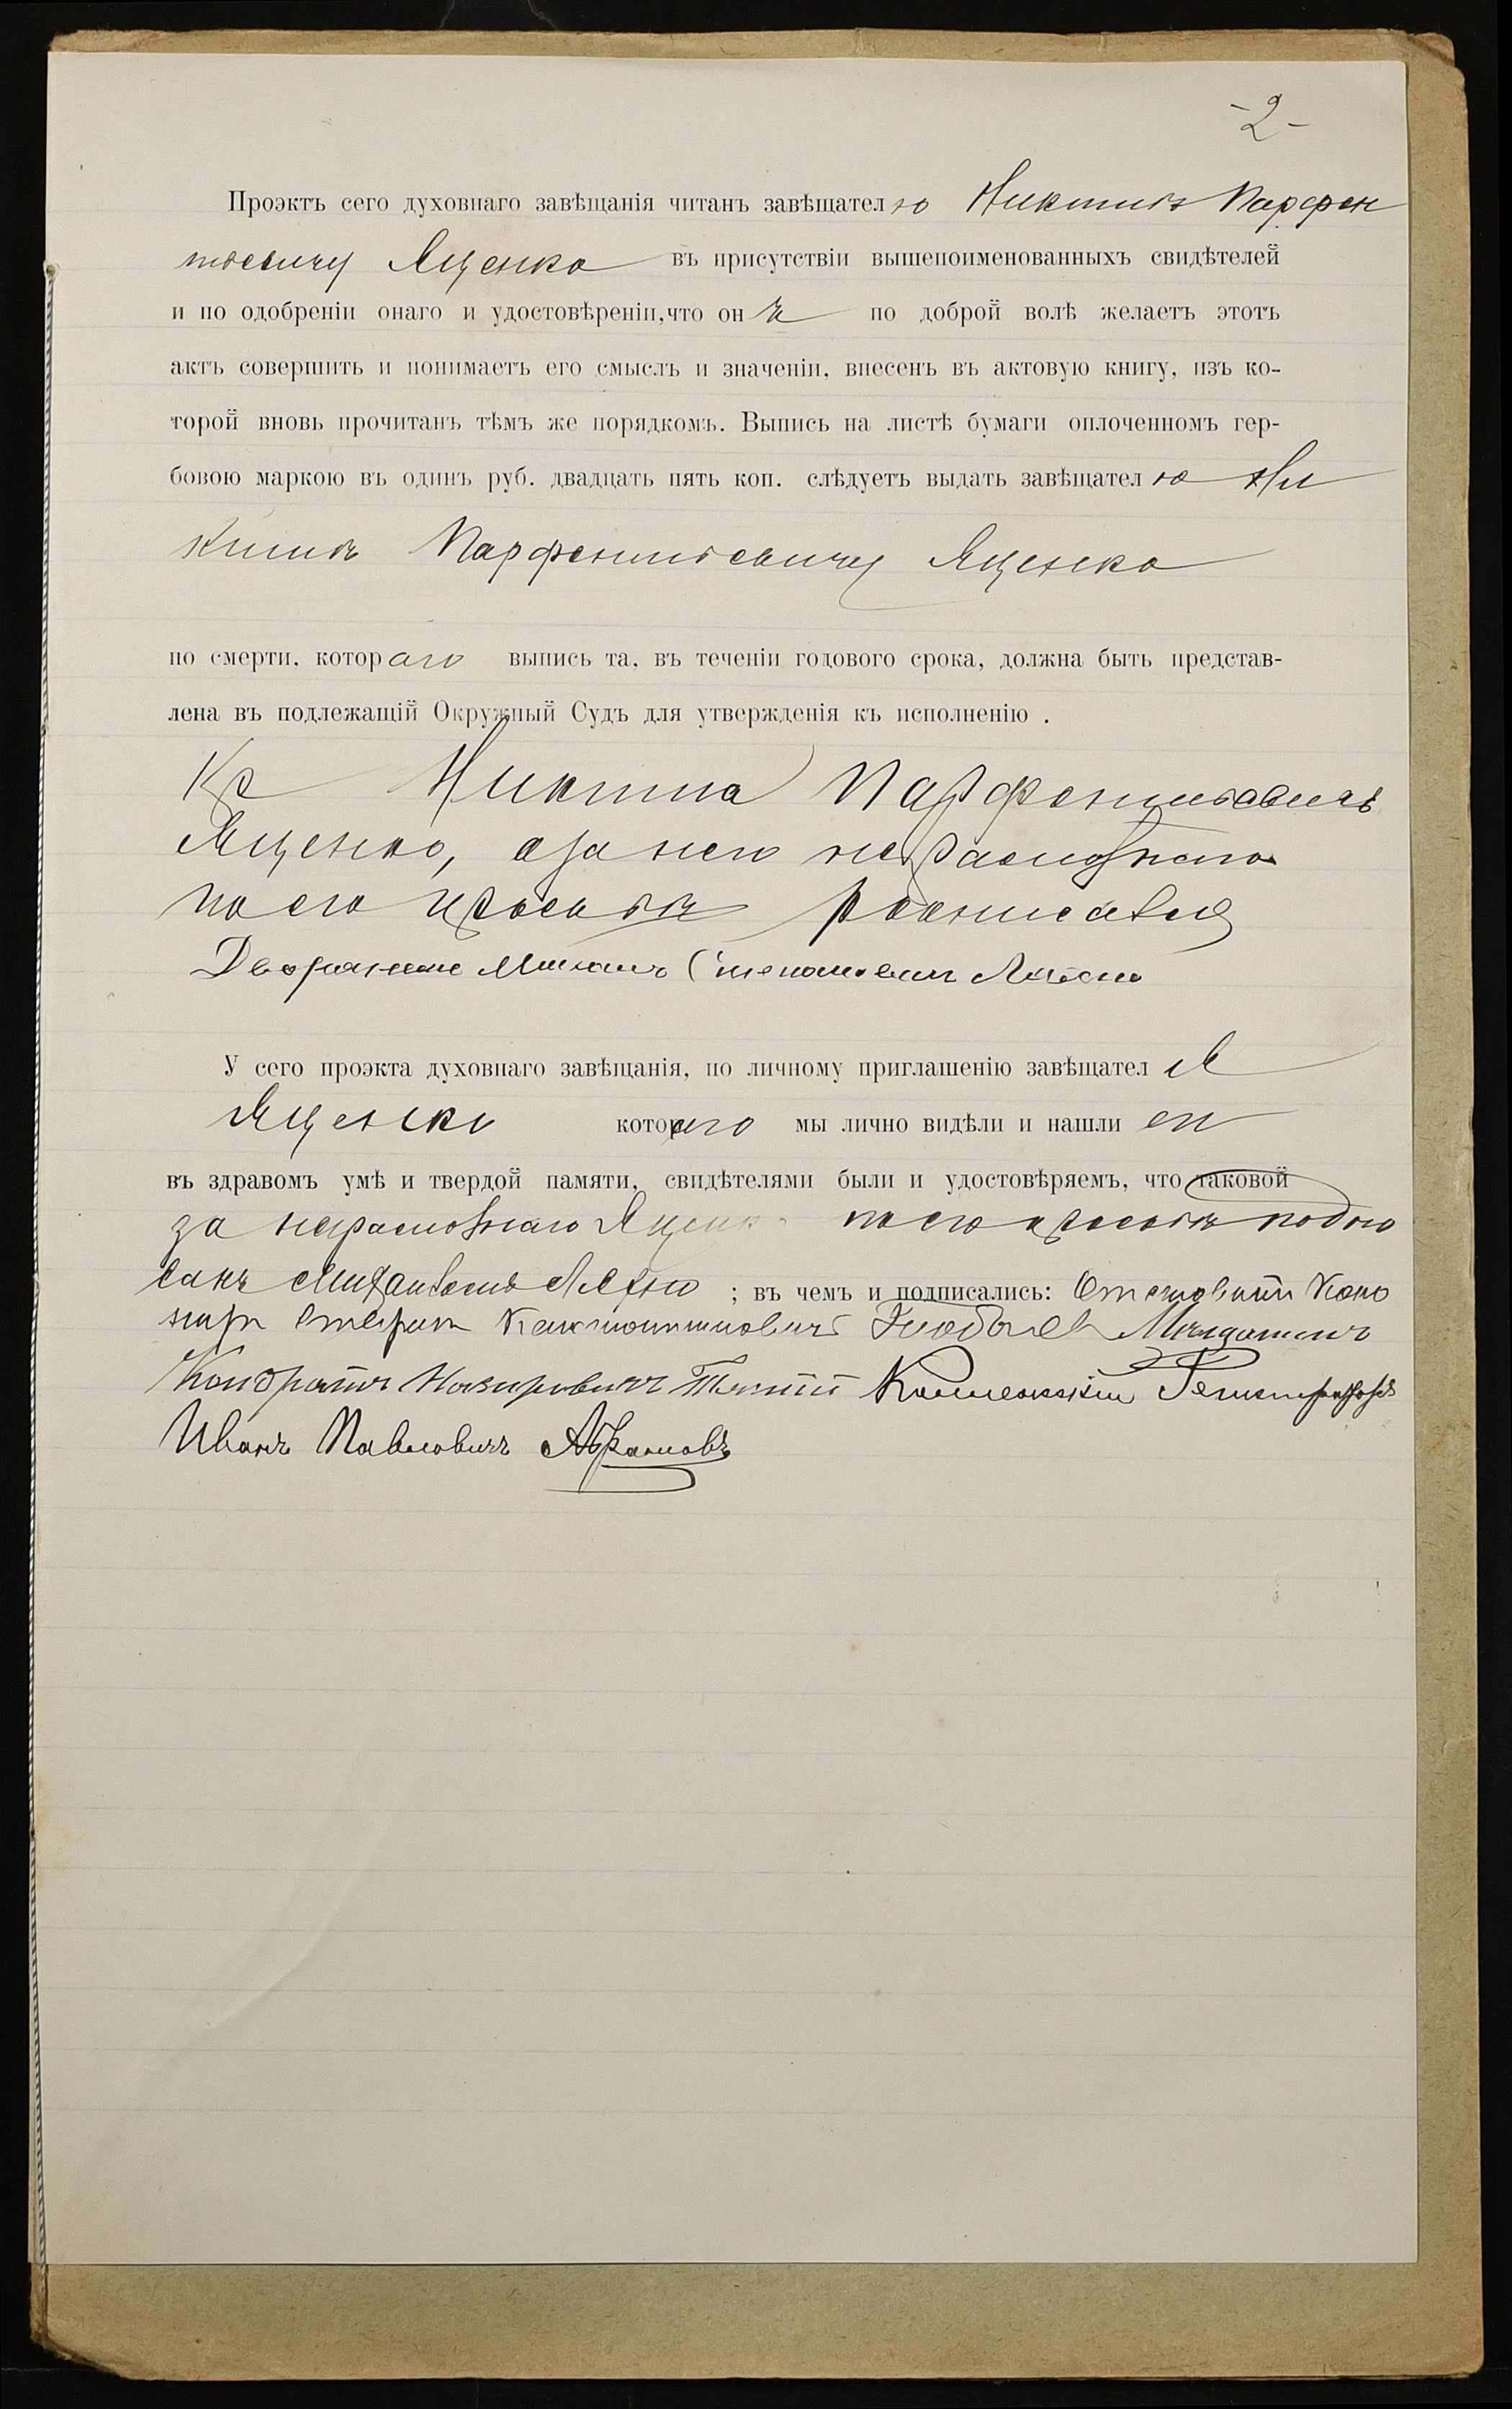 -2-
Проэктъ сего духовнаго завѣщанія читанъ завѣщателю Никитѣ Парфен
тьевичу Яценко въ присутствіи вышепоименованныхъ свидѣтелей
и по одобреніи онаго и удостовѣреніи,что онъ по доброй волѣ желаетъ этотъ
актъ совершить и понимаетъ его смыслъ и значеніи, внесенъ въ актовую книгу, изъ ко-
торой вновь прочитанъ тѣмъ же порядкомъ. Выпись на листѣ бумаги оплоченномъ гер-
бовою маркою въ одинъ руб. двадцать пять коп. слѣдуетъ выдать завѣщателю Ни
китѣ Парфентьевичу Яценко
по смерти, котораго выпись та, въ теченіи годового срока, должна быть представ-
лена въ подлежащій Окружный Судъ для утвержденія къ исполненію .
Кр Никита Парфентьевичъ
Яценко, а за него неграмотнаго
по его просьбѣ росписался
Дворянинъ Михаилъ Степановичъ
У сего проэкта духовнаго завѣщанія, по личному приглашенію завѣщателя
Яценко котораго мы лично видѣли и нашли
въ здравомъ умѣ и твердой памяти, свидѣтелями были и удостовѣряемъ, что таковой
за неграмотнаго Яценко по его просьбѣ подпи
санъ ; въ чемъ и подписались: Отставный Кано
ниръ Константиновичъ Мѣщанинъ
Кондратъ Назаровичъ Каменскій
Иванъ Павловичъ Абрамовъ